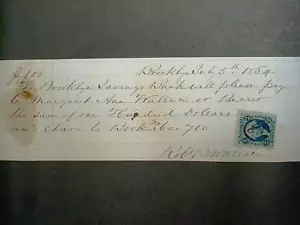 $ 100 Brooklyn July 5th 1864
The Brooklyn Savings Bank will please pay
to Margaret Ann Wallace or Bearer
the sum of one Hundred Dollars
and charge to Book No 710
Robt Wallace